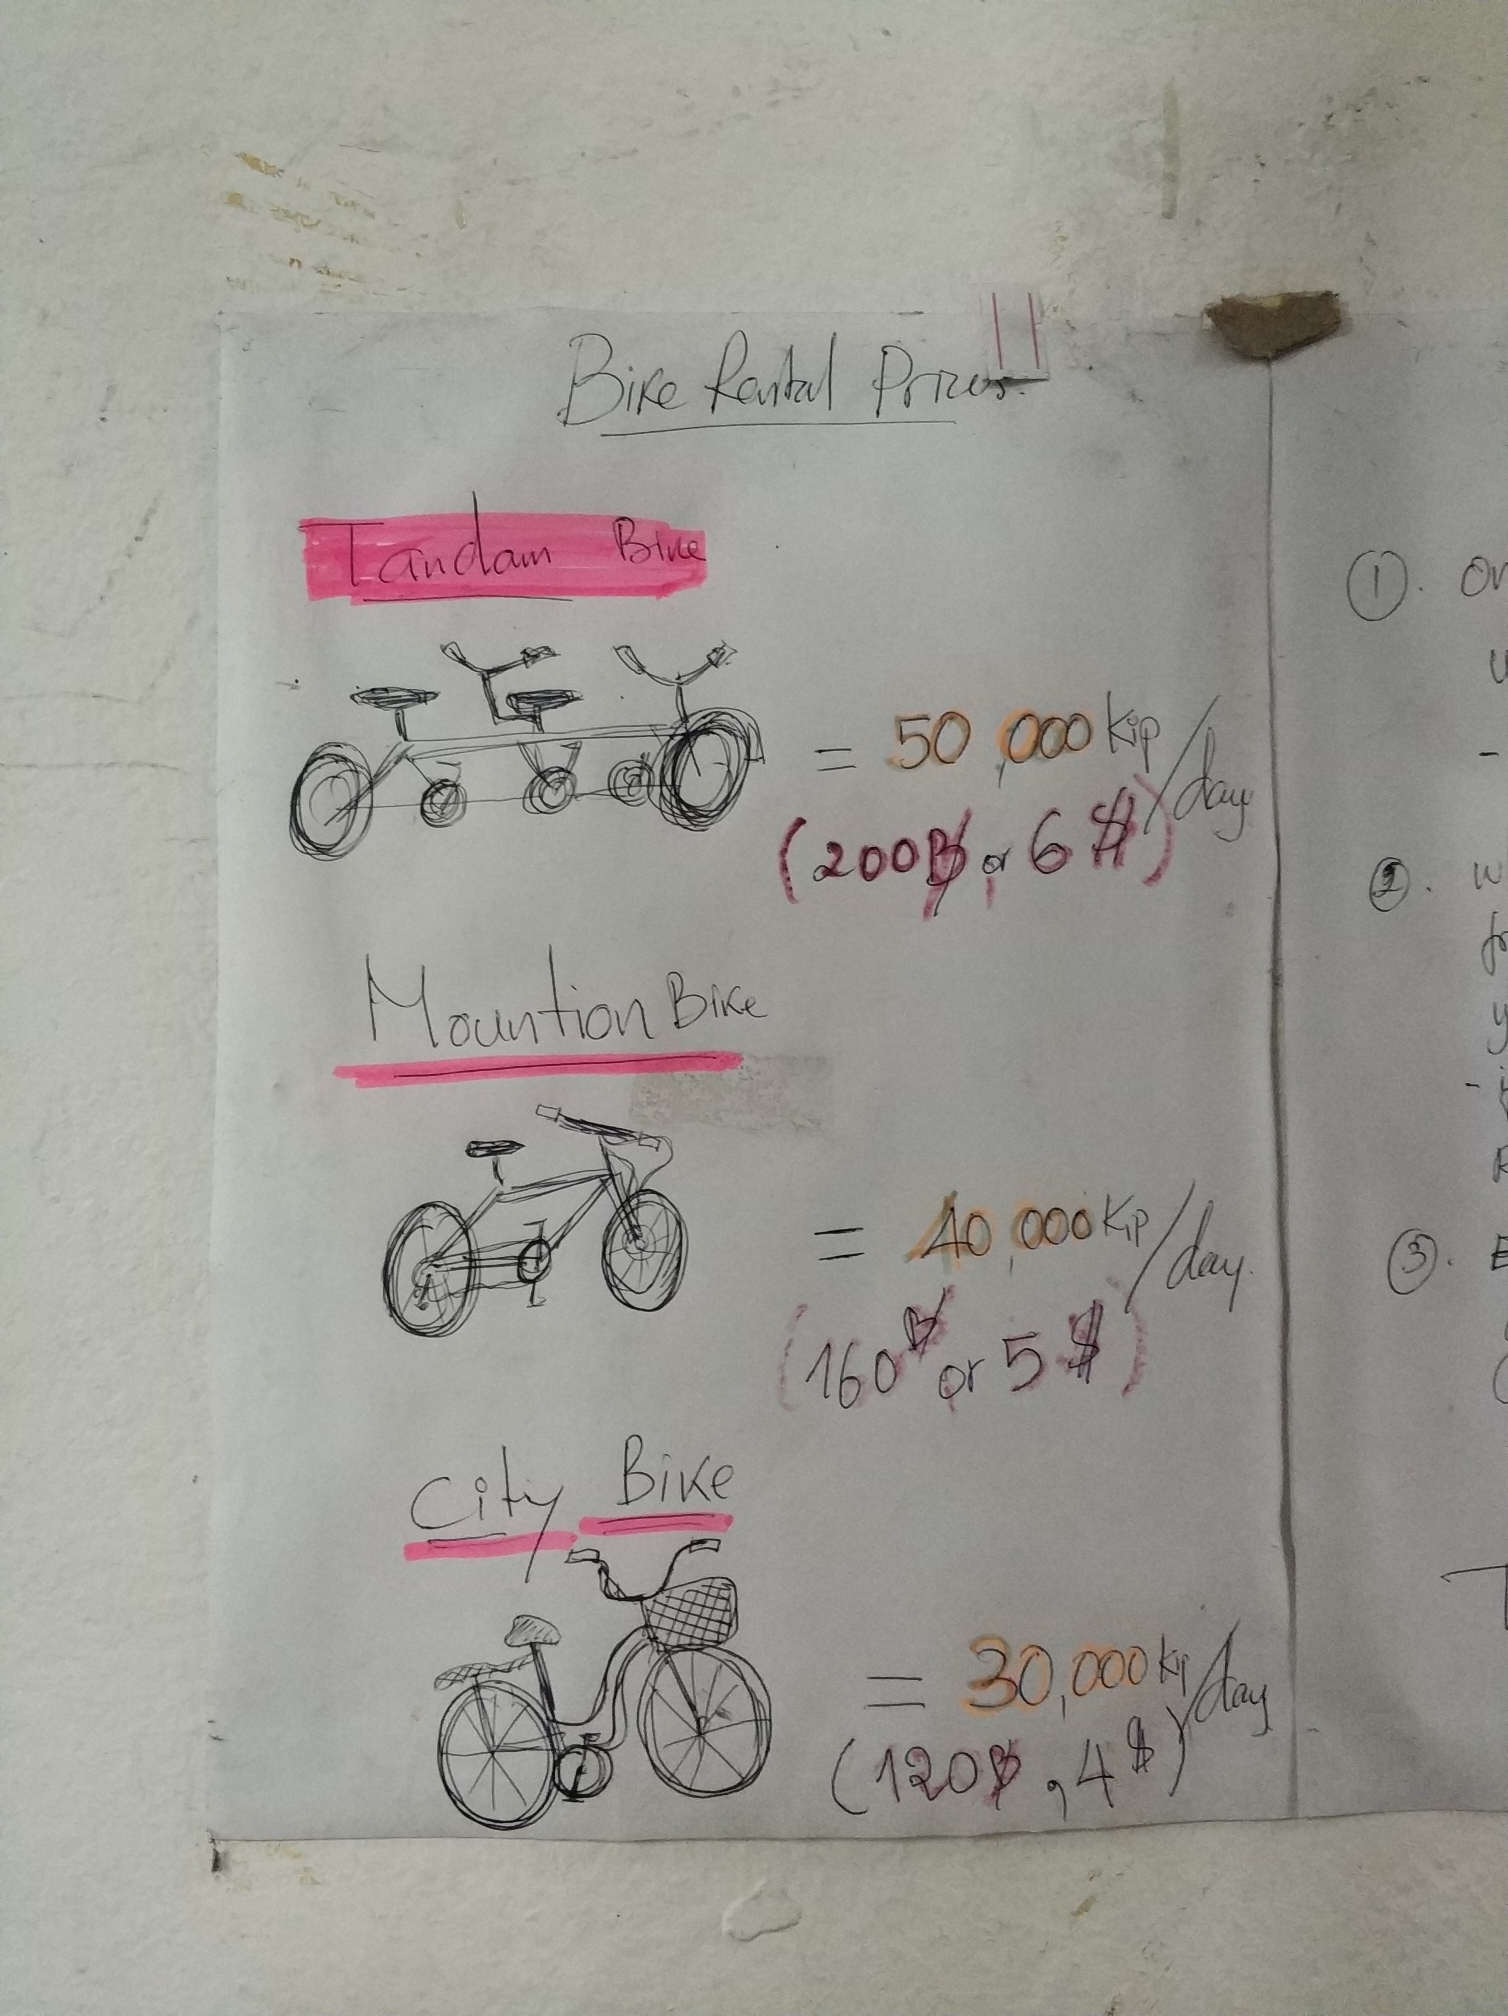 Bike Rental Prices.
Tandam Bike
= 50,000 Kip/day
(200฿ or 6$)
Mountion Bike
= 40,000 Kip/day.
(160฿ or 5$)
City Bike
= 30,000 Kip/day
(120฿, 4$)
①.
②.
③.